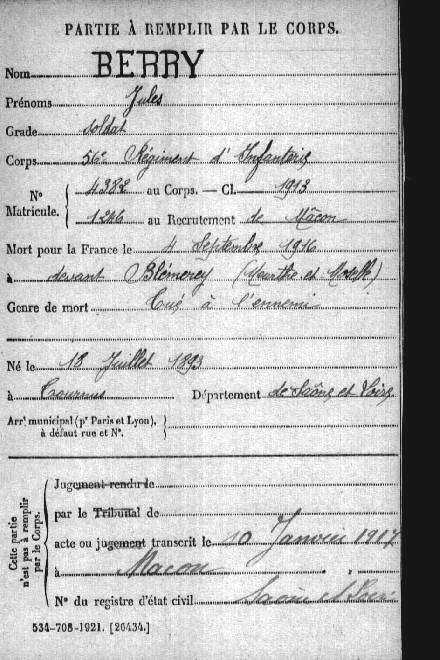 PARTIE À REMPLIR PAR LE CORPS.
Nom BERRY
Prénoms Jules
Grade soldat
Corps 56e Régiment d'Infanterie
N° Matricule. { 4382 au Corps. — Cl. 1913
1246 au Recrutement de Mâcon
Mort pour la France le 4 Septembre 1916
à devant Blémerey (Meurthe et Moselle)
Genre de mort Tué à l'ennemi
Né le 13 Juillet 1893
à Tournus Département de Saône et Loire
Arrt municipal (pr Paris et Lyon),
à défaut rue et N°.
Cette partie n'est pas à remplir par le Corps.
Jugement rendu le
par le Tribunal de
acte ou jugement transcrit le 10 Janvier 1917
à Macon
N° du registre d'état civil Saône et Loire
534-708-1921. [26434.]